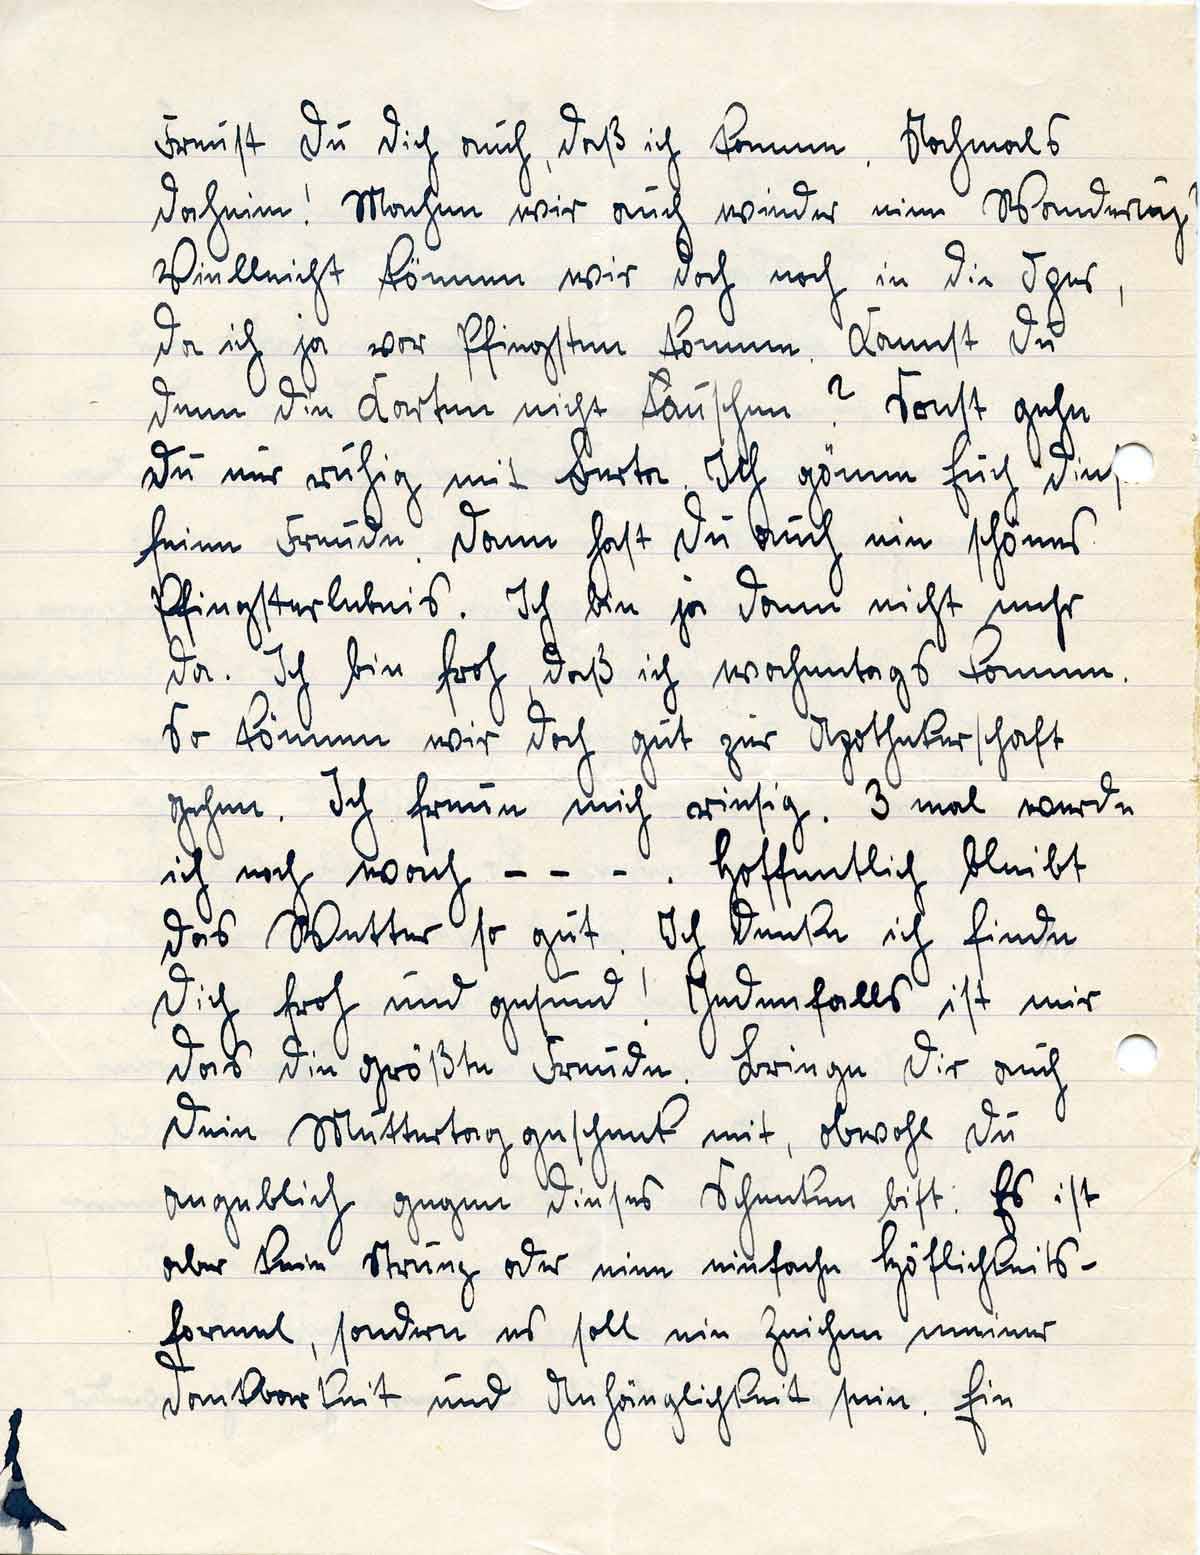 Freust Du Dich auch, daß ich komme. Nochmals
daheim! Machen wir auch wieder eine Wanderung?
Vielleicht können wir doch noch in die Oper,
da ich ja vor Pfingsten komme. Kannst Du
denn die Karten nicht tauschen? Sonst gehe
Du nur ruhig mit Berta. Ich gönne Euch die
feine Freude. Dann hast Du auch ein schönes
Pfingsterlebnis. Ich bin ja dann nicht mehr
da. Ich bin froh, daß ich wochentags komme.
So können wir doch gut zur Apothekerschaft
gehen. Ich freue mich riesig. 3 mal werde
ich noch wach – – – . Hoffentlich bleibt
das Wetter so gut. Ich denke ich finde
Dich froh und gesund! Jedenfalls ist mir
das die größte Freude. Bringe Dir auch
Dein Muttertaggeschenk mit, obwohl Du
angeblich gegen dieses Schenken bist. Es ist
aber kein Strunz oder eine einfache Höflichkeits-
formel, sondern es soll ein Zeichen meiner
Dankbarkeit und Anhänglichkeit sein. Ein